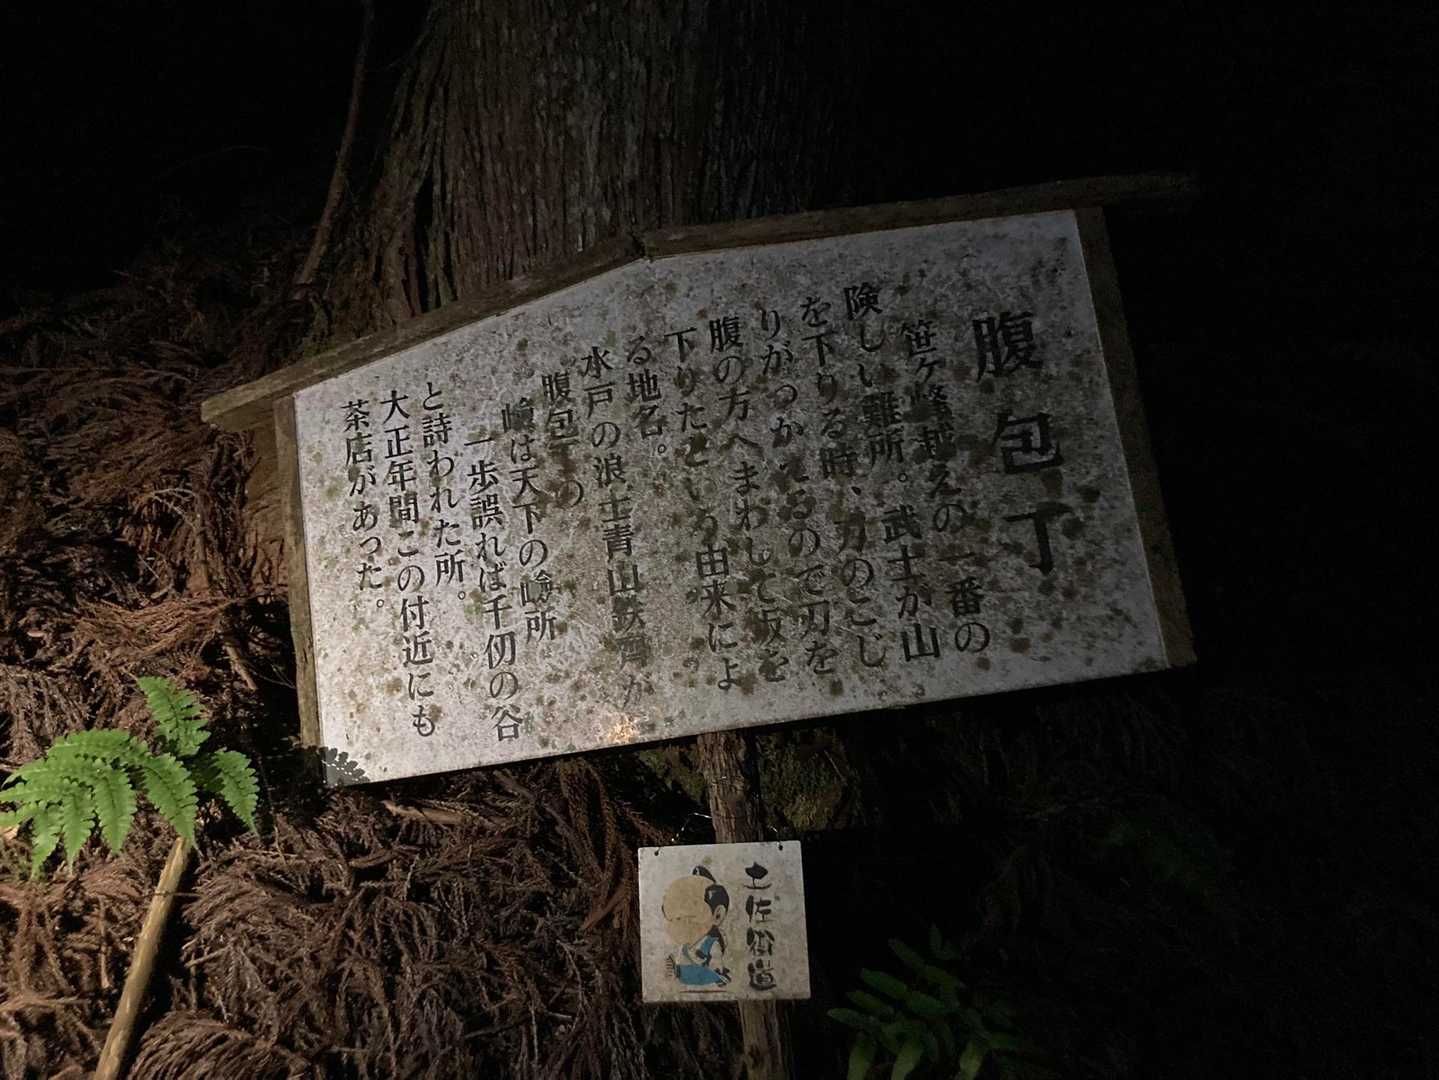 腹包丁
笹ヶ峰越えの一番の
険しい難所。武士が山
を下りる時、刀のこじ
りがつかえるので刃を
腹の方へまわして坂を
下りたという由来によ
る地名。
水戸の浪士青山鉄
が
腹包丁の
嶮は天下の嶮所
一歩誤れば千仞の谷
と詩われた所。
大正年間この付近にも
茶店があった。
土佐街道